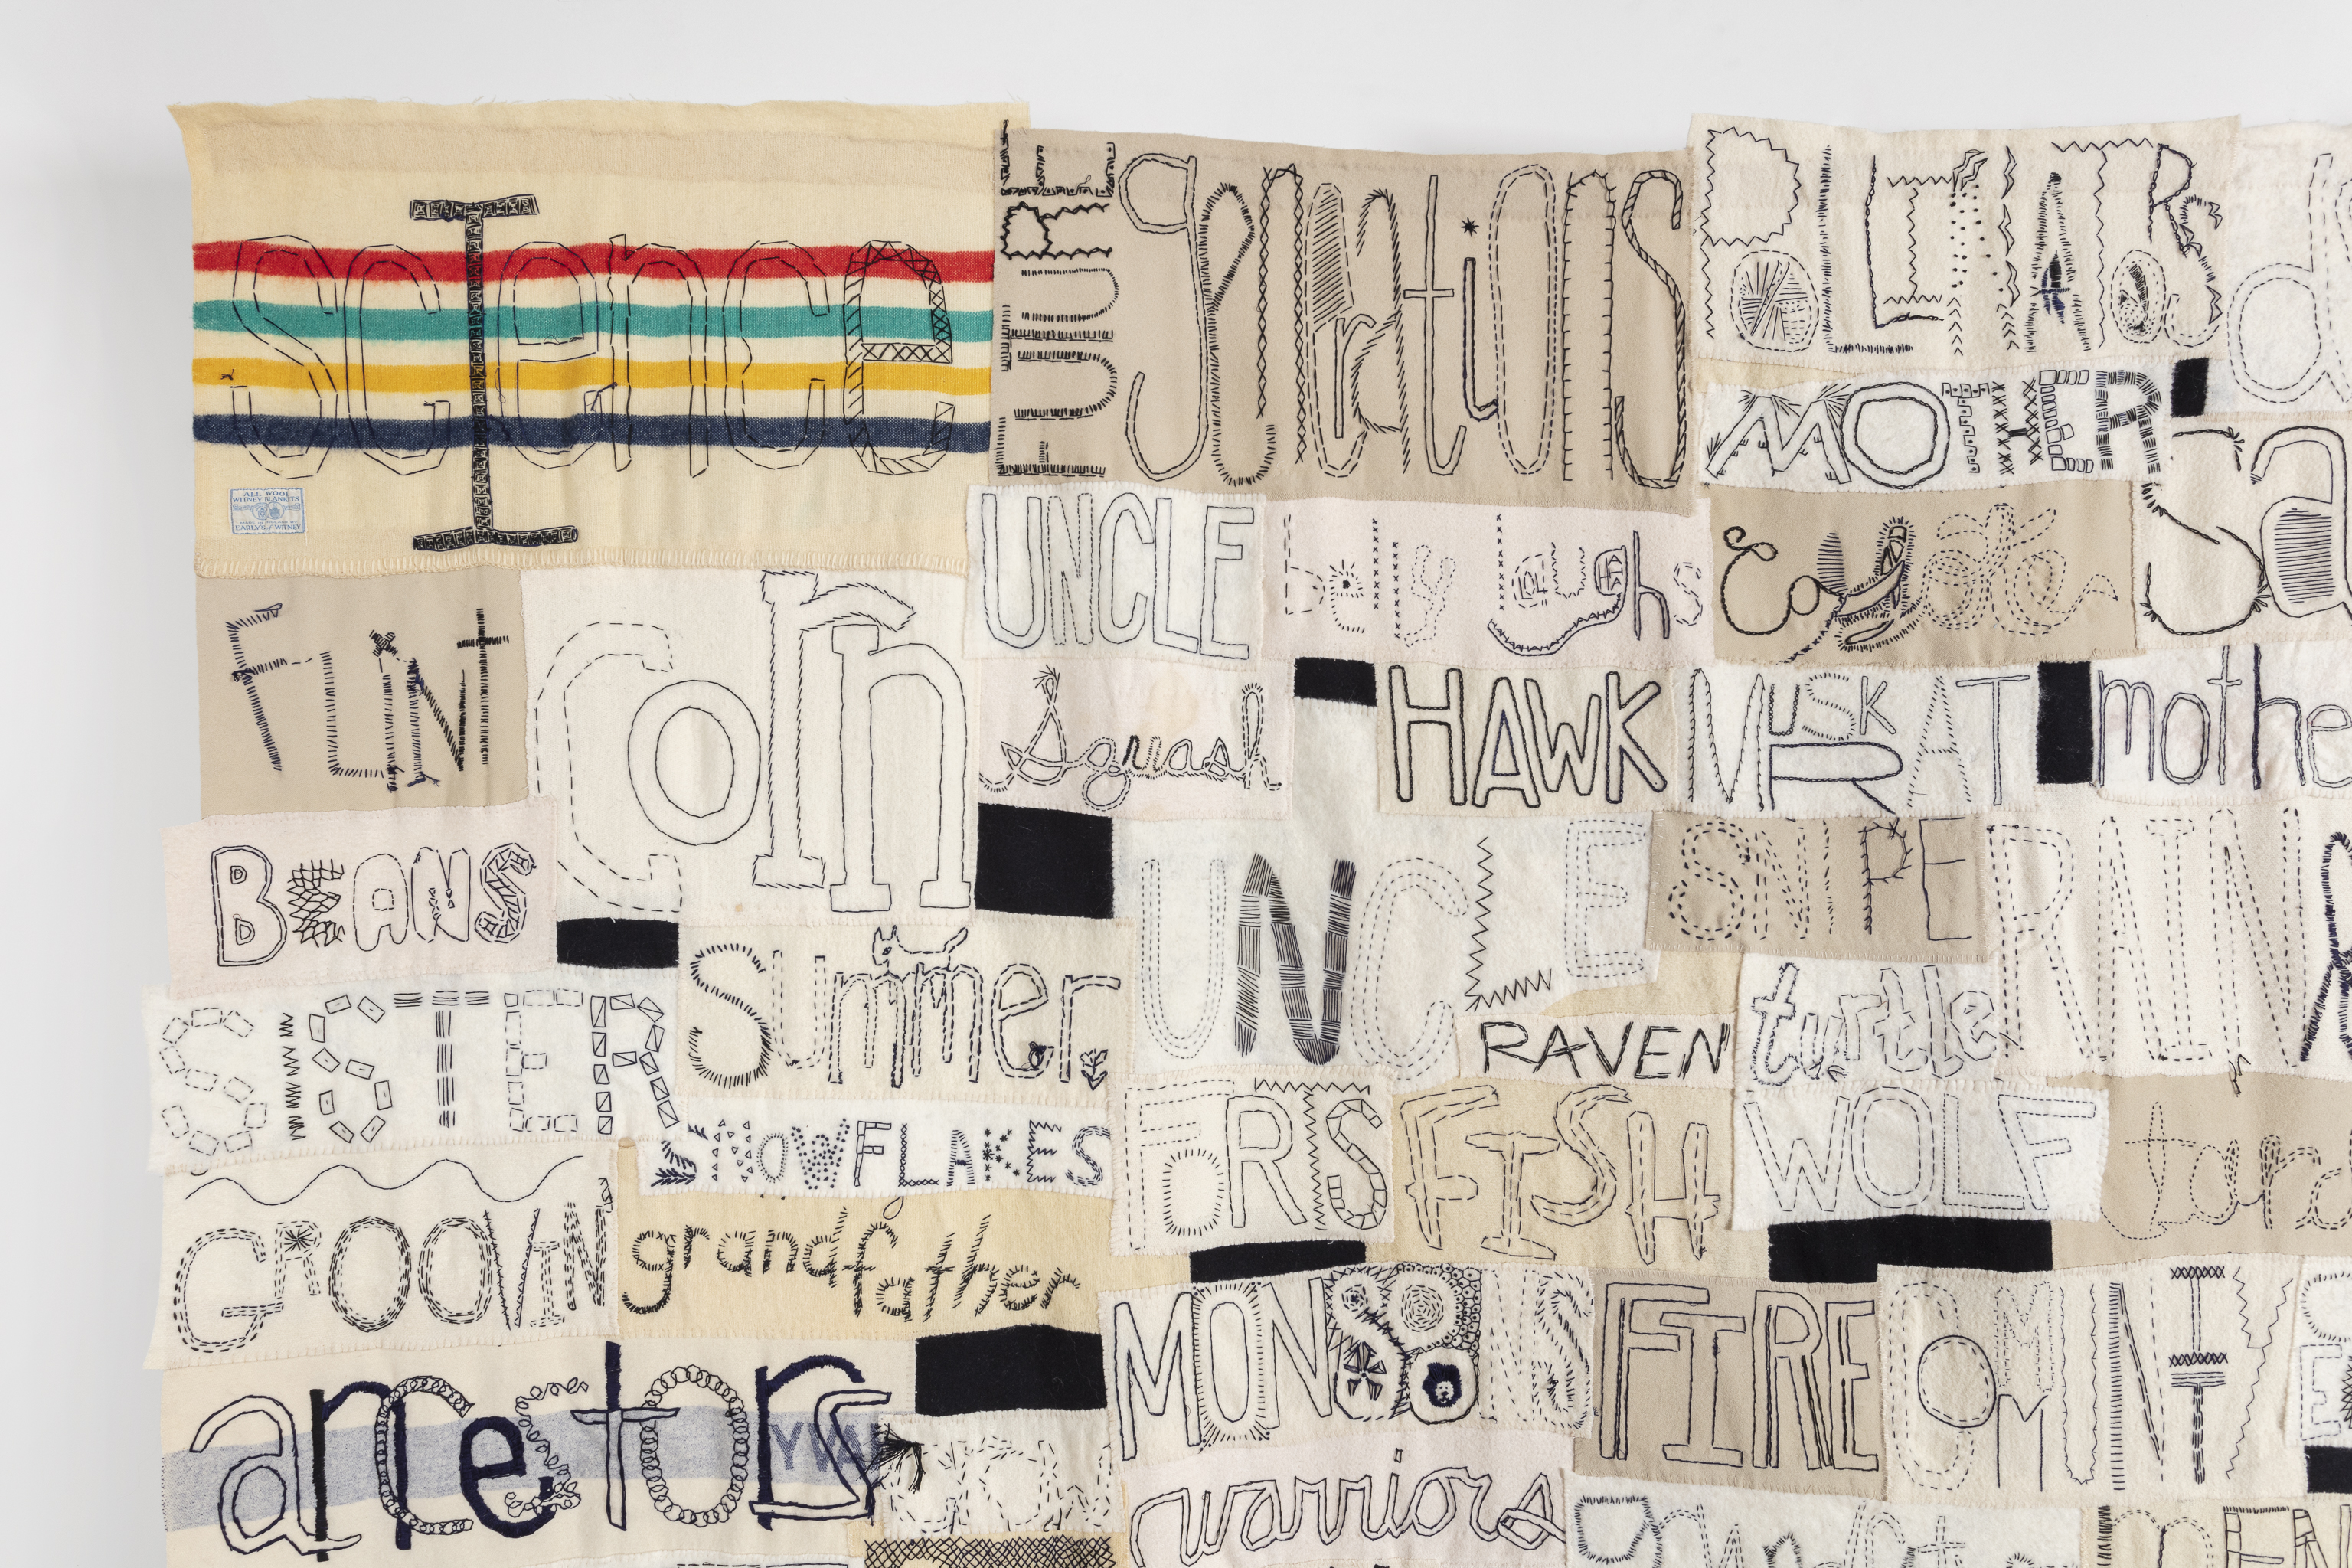 ScIence
FUTURE generations
POLLINATORS
ALL WOOL
WITNEY BLANKETS
EARLY'S of WITNEY
MOTHER
UNCLE
belly laughs
Coyote
FLINT
Corn
Squash
HAWK
MUSKRAT
mothe
BEANS
UNCLE
SNIPE
RAIN
SISTER
Summer
RAVEN
turtle
SNOWFLAKES
FISH
WOLF
grandfather
MONSOONS
FIRE
COMMUNITY
ancestors
warriors